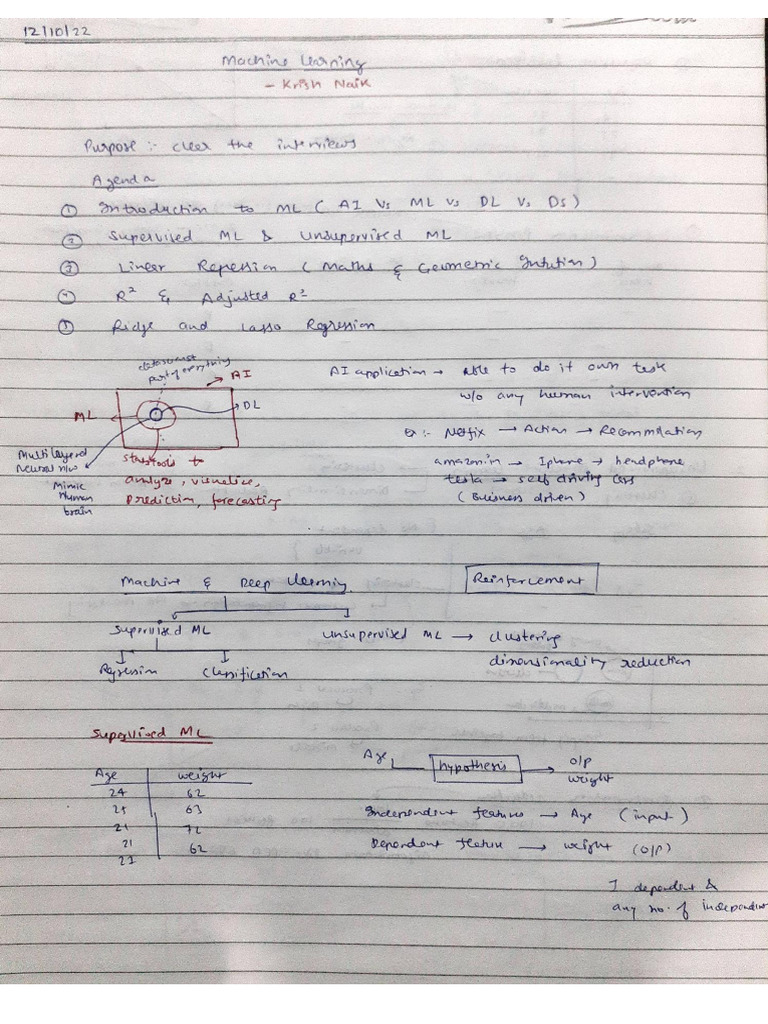 12/10/22
Machine Learning
- Krish Naik
Purpose :- clear the interviews
Agenda
① Introduction to ML ( AI Vs ML vs DL vs DS )
② Supervised ML & Unsupervised ML
③ Linear Regession ( Maths & Geometric Intution )
④ R² & Adjusted R²
⑤ Ridge and Lasso Regression
part of everything
AI
ML
DL
Multilayered
Neural n/w
Mimic
Human
brain
Stats tools to
analyze, visualise,
Prediction, forecasting
AI application → Able to do it own task
w/o any human intervention
Ex :- Netfix → Action → Recommdation
amazon.in → Iphone → headphone
tesla → self driving cars
( Buisness driven )
Machine & Deep Learning
Reinforcement
Supervised ML
Unsupervised ML → clustering
dimensionality reduction
Regression
Classification
Supervised ML
Age weight
24 62
25 63
21 72
21 62
Age
hypothesis → O/P
weight
Independent features → Age (input)
Dependent feature → weight (O/P)
1 dependent &
any no. of independent